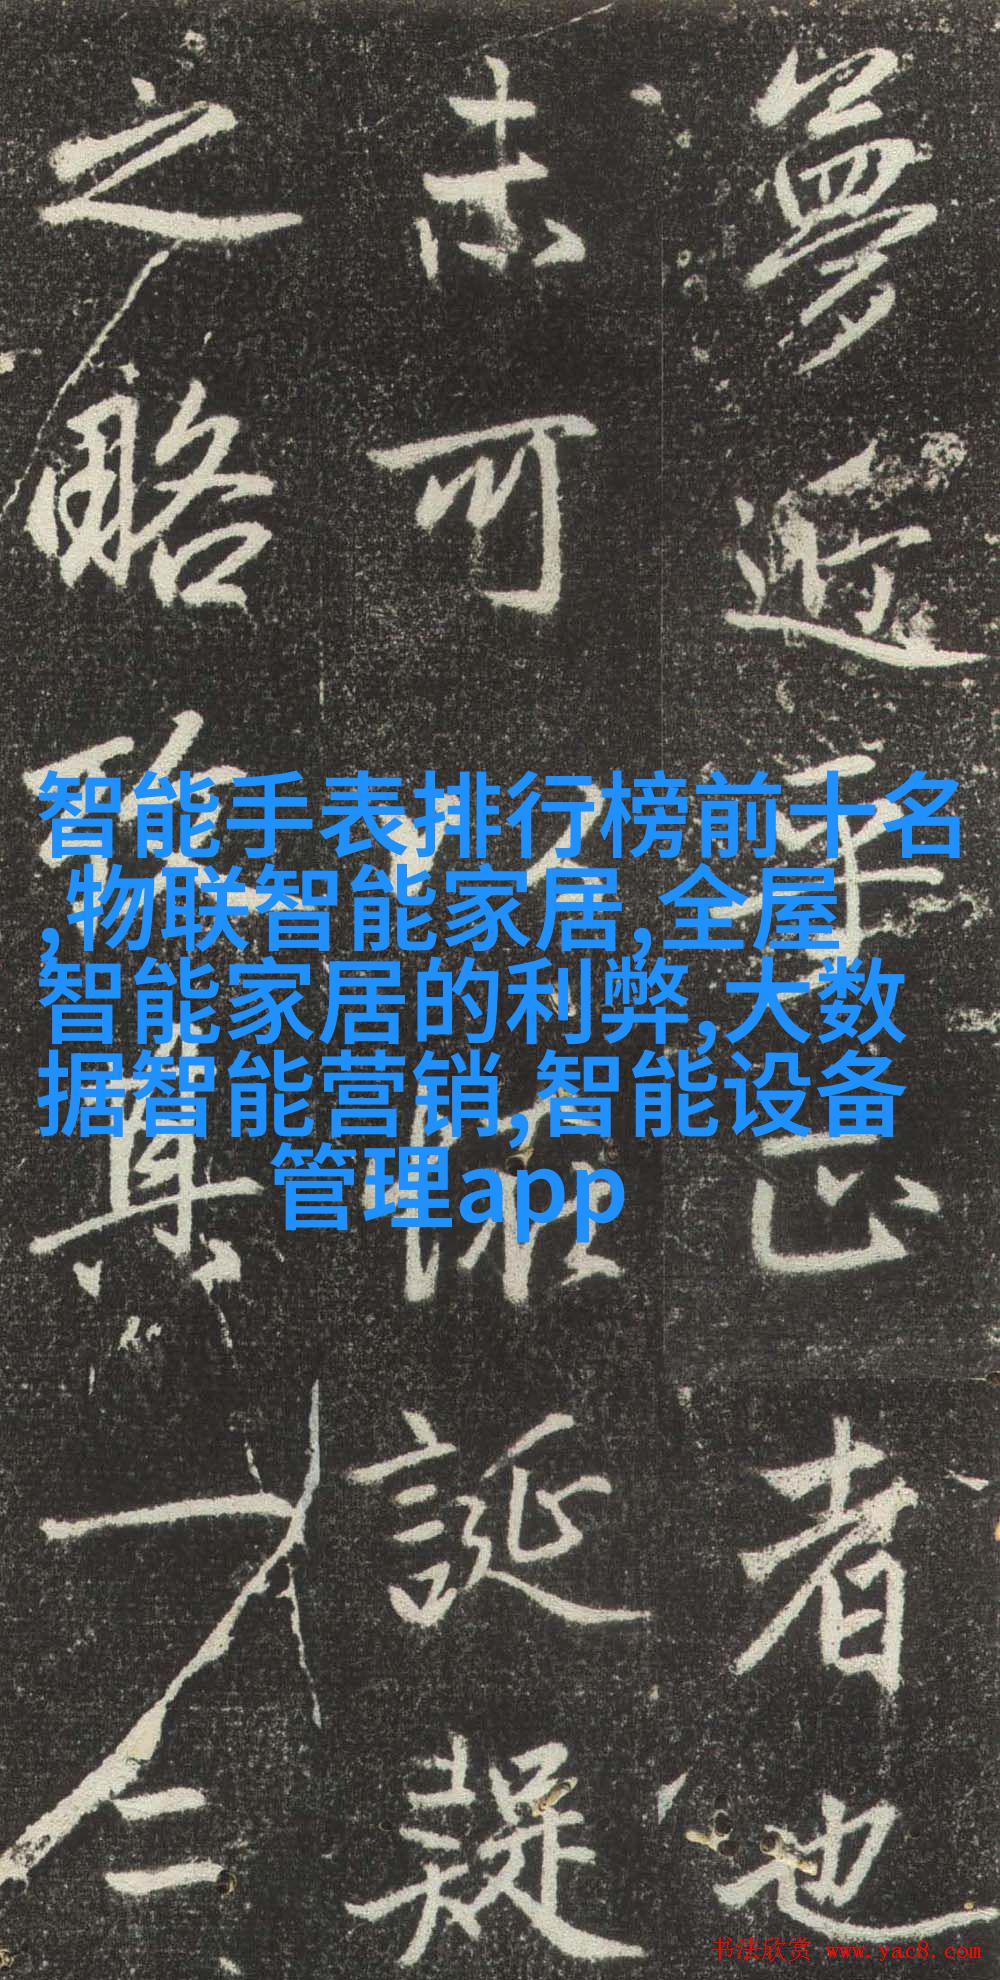 夢近乎正者也
未可以恠誕疑
之略真一
智能手表排行榜前十名
,物联智能家居,全屋
智能家居的利弊,大数
据智能营销,智能设备
管理app
书法欣赏 www.yac8.com